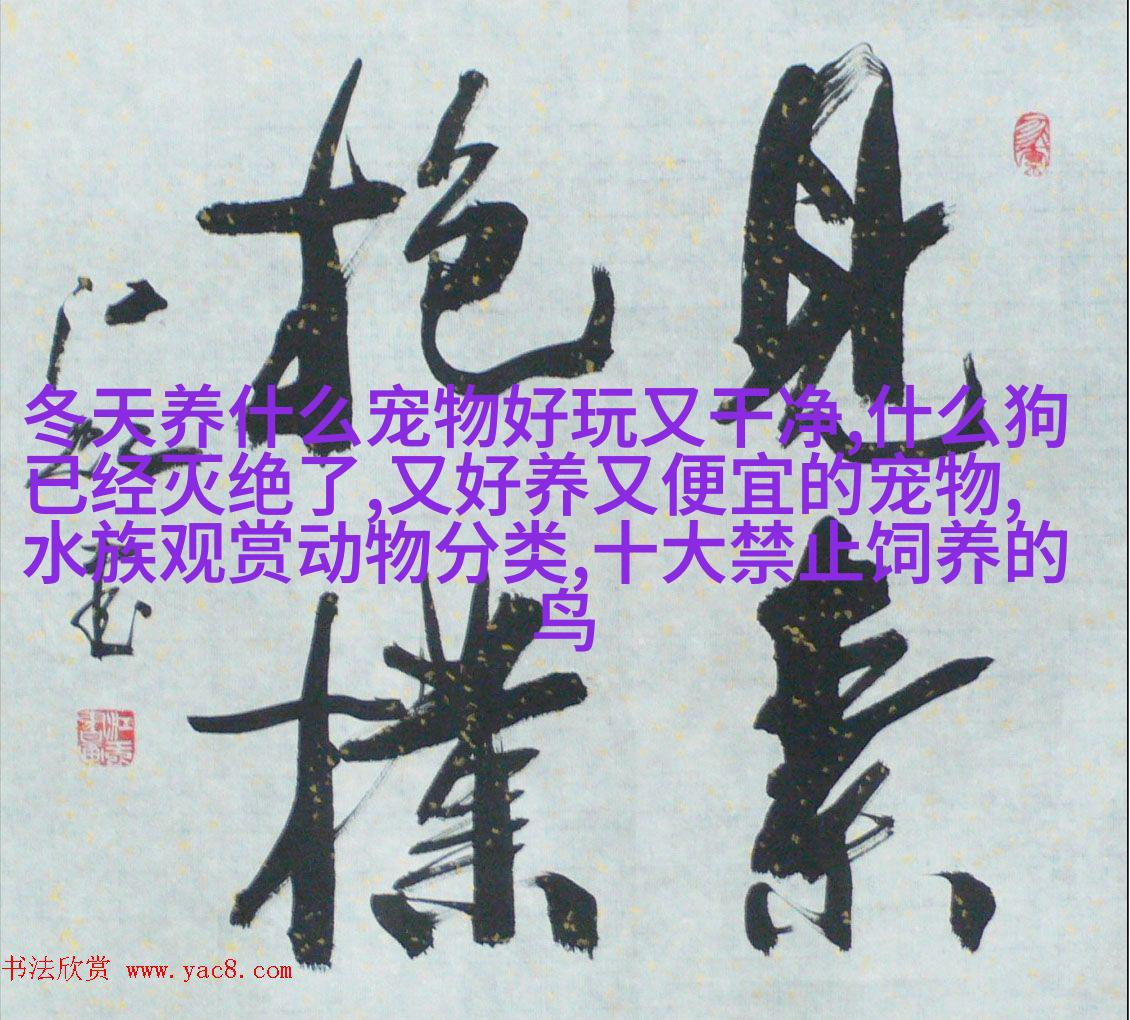 見素
抱樸
冬天养什么宠物好玩又干净,什么狗
已经灭绝了,又好养又便宜的宠物,
水族观赏动物分类,十大禁止饲养的
鸟
书法欣赏 www.yac8.com